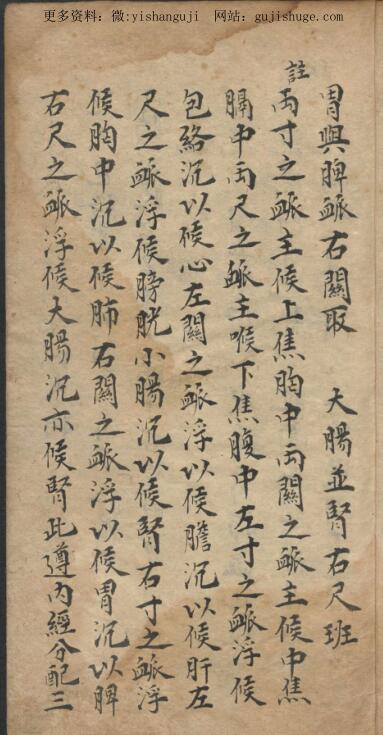 更多资料：微:yishanguji 网站：gujishuge.com
胃與脾脈右關取 大腸並腎右尺班
註
两寸之脈主候上焦胸中两關之脈主候中焦
膈中两尺之脈主喉下焦腹中左寸之脈浮候
包絡沉以候心左關之脈浮以候膽沉以候肝左
尺之脈浮候膀胱小腸沉以候腎右寸之脈浮
候胸中沉以候肺右關之脈浮以候胃沉以脾
右尺之脈浮候大腸沉亦候腎此遵内經分配三